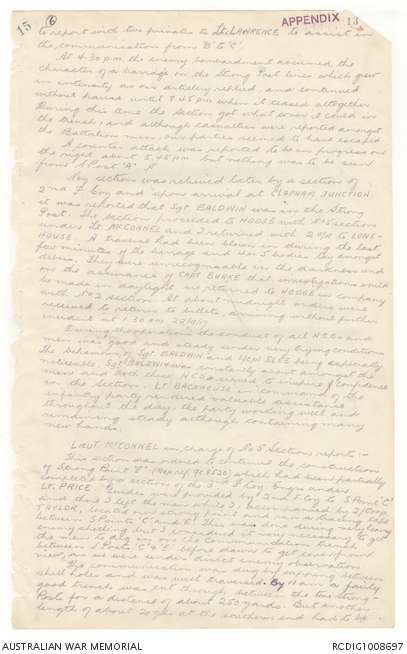 15
6
APPENDIX 13
to report with two privates to Lt. LAWRENCE to assist in
the communication from 'B' to 'C'.
At 4.30 p.m. the enemy bombardment assumed the
character of a barrage on the Strong Post lines which grew
in intensity as our artillery replied, and continued
without pause until 8.45 pm when it ceased altogether
During this time the section got what cover it could in
the trench, and although casualties were reported amongst
the Battalion men, our parties seemed to have escaped
A counter attack was reported to be in progress on
the right about 5.45 pm but nothing was to be seen
from S. Post 'A'
My section was relieved later by a section of
2nd F. Coy and upon arrival at CLAPHAM JUNCTION
it was reported that Sgt. BALDWIN was in the Strong
Post. The section proceeded to HOOGE with No 5 section
under Lt McCONNEL and I returned with
HOUSE. A traverse had been blown in during the last
few minutes of the barrage and 4 or 5 bodies lay amongst
debris. These were unrecognisable in the darkness and
on the assurance of CAPT BURKE that investigations would
be made in daylight we returned to HOOGE in company
with No 2 section. At about midnight orders were
received to return to billets, arriving without further
incident at 1.30 am 22/9/17.
During the operation the conduct of all N.C.Os and
men was good and steady under very trying conditions
The behaviour of Sgt BALDWIN and 2/Cpl SLEE being especially
noticeable. Sgt BALDWIN was constantly about amongst the
men and both N.C.O's seemed to inspire confidence
in the section. Lt BACKHOUSE in command of the
infantry party rendered valuable assistance
throughout the day, the party working well and
remaining steady although containing many
new hands.
LIEUT McCONNEL in charge of No 5 Sections report :-
This section was ordered to continued the construction
of Strong Point 'E' which had been partially
completed by a sections of the 2nd F Coy Engineers under
Lt. PRICE. Guides were provided by 2nd F Coy to S Point 'C'
and there I left the men while I, accompanied by 2/Corp
TAYLOR, located our strong point and ran a tracing tape
between S Points 'C' and 'E'. This was done during very heavy
enemy shelling and I considered it was necessary to get
the men to dig in on the Communication trench
between S Posts 'C' & 'E' before dawn to get cover from
view, as we were under direct enemy observation
The communication was dug by sapping between
shell holes and was well traversed. By 11 am a fairly
good trench was put through between the two strong
Posts for a distance of about 250 yards. But another
length of about 20 yds at the southern end had to be
AUSTRALIAN WAR MEMORIAL
RCDIG1008697